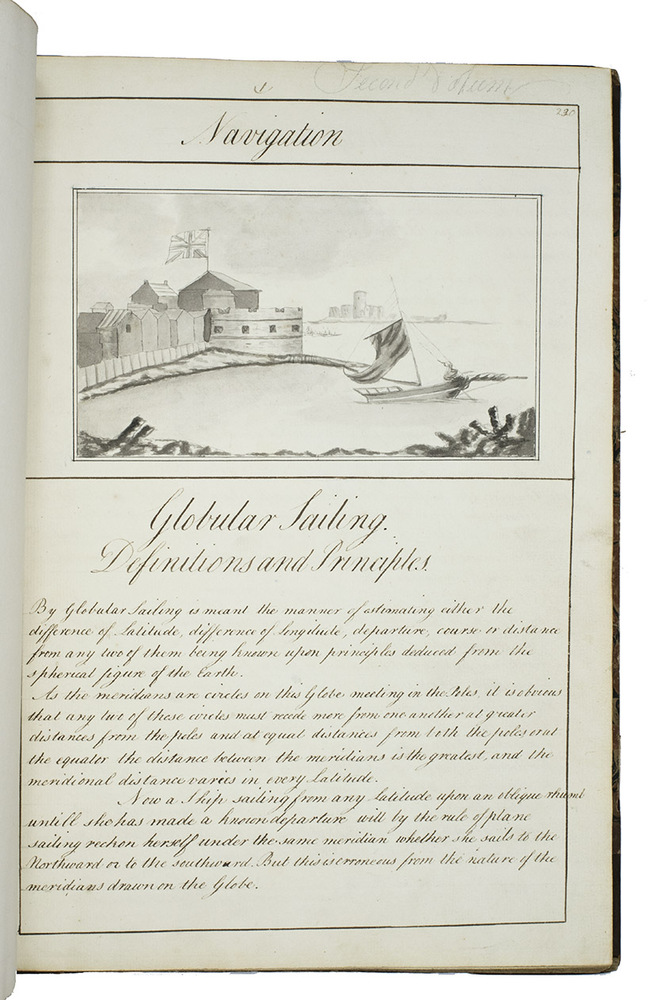 1
Second Volum
230
Navigation
Globular Sailing.
Definitions and Principles.
By Globular Sailing is meant the manner of estimating either the
difference of Latitude, difference of Longitude, departure, course or distance
from any two of them being known upon principles deduced from the
spherical figure of the Earth.
As the meridians are circles on this Globe meeting in the Poles, it is obvious
that any two of those circles must recede more from one another at greater
distances from the poles and at equal distances from both the poles or at
the equator the distance between the meridians is the greatest, and the
meridional distance varies in every Latitude.
Now a Ship sailing from any latitude upon an oblique rhumb
untill she has made a known departure will by the rule of plane
sailing reckon herself under the same meridian whether she sails to the
Northward or to the southward. But this is erroneous from the nature of the
meridians drawn on the Globe.